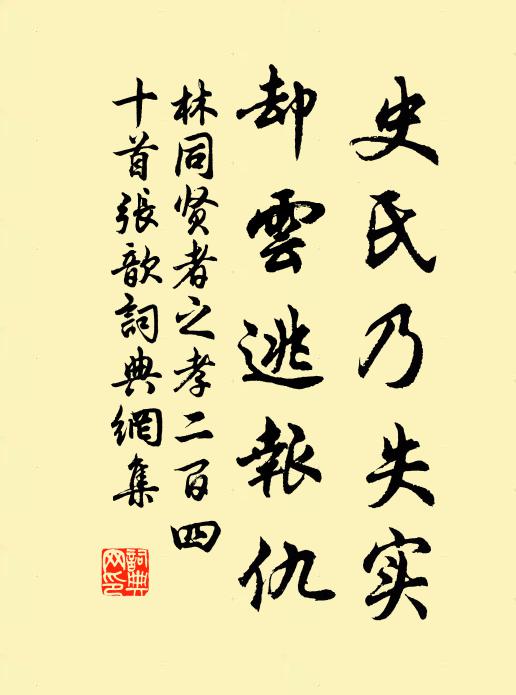 史氏乃失实
却雲逃報仇
林同贤者之孝二百四
十首張歆詞典網集
詞典网印